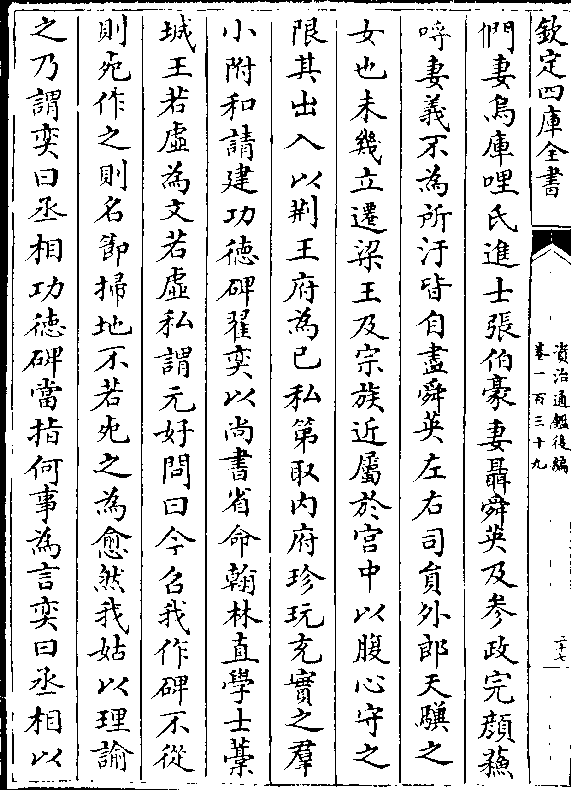 欽定四庫全書
資治通鑑後編
卷一百三十九
二十七
們妻烏庫哩氏進士張伯豪妻聶舜英及参政完顔蘓
哼妻義不為所汙皆自盡舜英左右司員外郎天驥之
女也未幾立遷梁王及宗族近屬於宫中以腹心守之
限其出入以荆王府為己私第取内府珍玩充實之羣
小附和請建功徳碑翟奕以尚書省命翰林直學士藁
城王若虚為文若虚私謂元好問曰今召我作碑不從
則死作之則名節掃地不若死之為愈然我姑以理諭
之乃謂奕曰丞相功徳碑當指何事為言奕曰丞相以